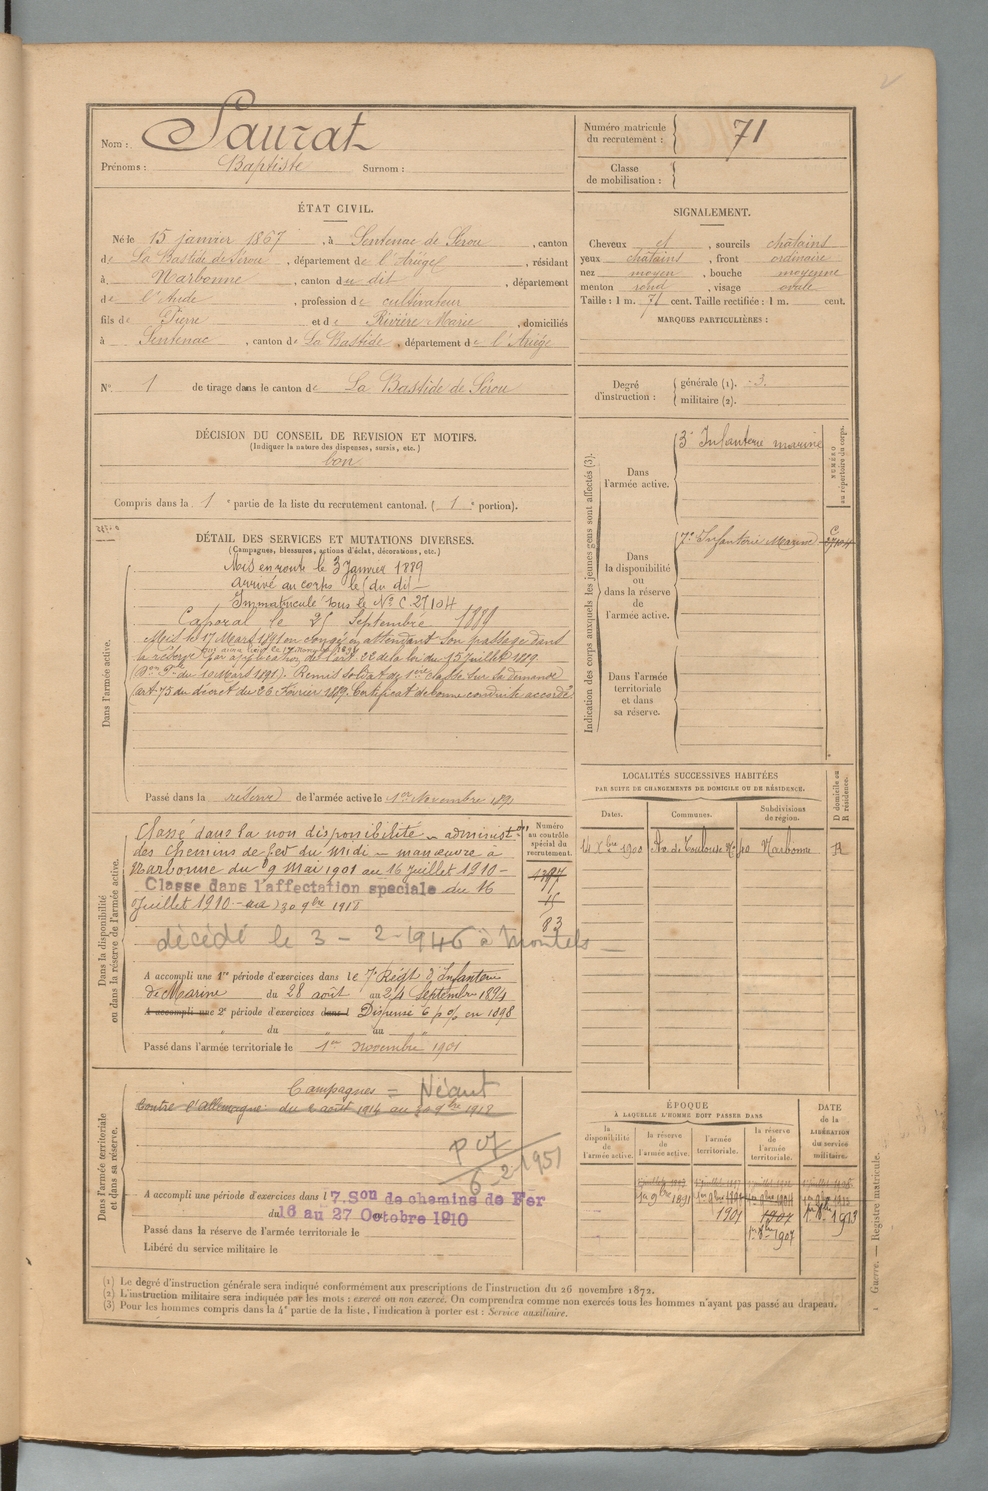 Nom : Saurat
Prénoms : Baptiste Surnom :
Numéro matricule du recrutement : 71
Classe de mobilisation :
ÉTAT CIVIL.
Né le 15 janvier 1867, à Sentenac de Sérou, canton
de La Bastide de Sérou, département de l'Ariège, résidant
à Narbonne, canton du dit, département
de l'Aude, profession de cultivateur
fils de Pierre et de Rivière Marie, domiciliés
à Sentenac, canton de La Bastide, département de l'Ariège
N° 1 de tirage dans le canton de La Bastide de Sérou
SIGNALEMENT.
Cheveux et, sourcils châtains
yeux châtains, front ordinaire
nez moyen, bouche moyenne
menton rond, visage ovale
Taille : 1 m. 71 cent. Taille rectifiée : 1 m. cent.
MARQUES PARTICULIÈRES :
Degré d'instruction : générale (1). 3.
militaire (2).
DÉCISION DU CONSEIL DE REVISION ET MOTIFS.
(Indiquer la nature des dispenses, sursis, etc.)
bon
Compris dans la 1e partie de la liste du recrutement cantonal. (1e portion).
DÉTAIL DES SERVICES ET MUTATIONS DIVERSES.
(Campagnes, blessures, actions d'éclat, décorations, etc.)
Dans l'armée active.
Mis en route le 3 Janvier 1889
arrivé au corps le (du dit
Immatriculé sous le N° C 27104
Caporal le 25 Septembre 1889
Mis le 17 Mars 1891 en congé en attendant son passage dans
la réserve par application de l'art 22 de la loi du 15 Juillet 1889
du 10 Mars 1891). Remis soldat de 1re classe sur sa demande
(art 75 du décret du 26 Février 1889. Certificat de bonne conduite accordé
Passé dans la réserve de l'armée active le 1er Novembre 189
Indication des corps auxquels les jeunes gens sont affectés (3).
NUMÉRO au répertoire du corps.
Dans l'armée active.
3e Infanterie marine
Dans la disponibilité ou dans la réserve de l'armée active.
7e Infanterie Marine C 27104
Dans l'armée territoriale et dans sa réserve.
LOCALITÉS SUCCESSIVES HABITÉES
PAR SUITE DE CHANGEMENTS DE DOMICILE OU DE RÉSIDENCE.
Dates. Communes. Subdivisions de région. D domicile ou R résidence.
14 Xbre 1900 Narbonne R
Dans la disponibilité ou dans la réserve de l'armée active.
Numéro au contrôle spécial du recrutement.
Classé dans la non disponibilité - administ.on
des chemins de fer du Midi - manœuvre à
Narbonne du 9 Mai 1901 au 16 Juillet 1910 -
Classé dans l'affectation spéciale du 16
Juillet 1910 - au 30 9bre 1918
15
83
décédé le 3 - 2 - 1946 à Montels
A accompli une 1re période d'exercices dans le 7e Régt d'Infanterie
de Marine du 28 août au 24 Septembre 1894
A accompli une 2e période d'exercices dans l Dispensé 6 p % en 1898
du au
Passé dans l'armée territoriale le 1er novembre 1901
Dans l'armée territoriale et dans sa réserve.
Campagnes = Néant
Contre l'Allemagne : du 2 août 1914 au 30 9bre 1918
6-2-1951
A accompli une période d'exercices dans l 7.Son de chemins de Fer
du 16 au 27 Octobre 1910
Passé dans la réserve de l'armée territoriale le
Libéré du service militaire le
ÉPOQUE
À LAQUELLE L'HOMME DOIT PASSER DANS
la disponibilité de l'armée active.
la réserve de l'armée active.
l'armée territoriale.
la réserve de l'armée territoriale.
DATE de la LIBÉRATION du service militaire.
1er 9bre 1891
1901 1907
1er 8bre 1907
1913
(1) Le degré d'instruction générale sera indiqué conformément aux prescriptions de l'instruction du 26 novembre 1872.
(2) L'instruction militaire sera indiquée par les mots : exercé ou non exercé. On comprendra comme non exercés tous les hommes n'ayant pas passé au drapeau.
(3) Pour les hommes compris dans la 4e partie de la liste, l'indication à porter est : Service auxiliaire.
Guerre. — Registre matricule.